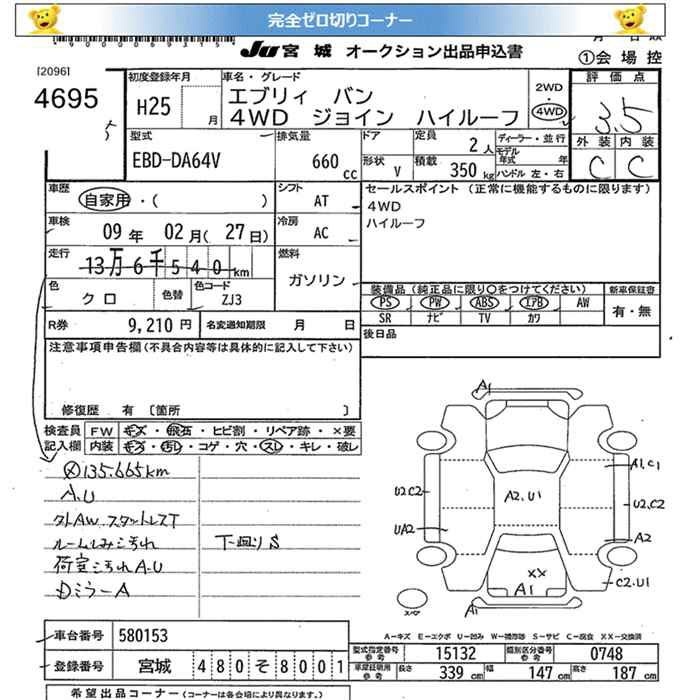 完全ゼロ切りコーナー
JU 宮城 オークション出品申込書
①会場控
[2096]
4695
初度登録年月
H25 月
車名・グレード
エブリィ バン
4WD ジョイン ハイルーフ
2WD
4WD
評価点
3.5
外装 内装
C C
型式
EBD-DA64V
排気量
660 cc
ドア
形状 V
定員
2 人
積載
350 kg
ディーラー・並行
モデル年式 年
ハンドル 左・右
車歴
自家用・( )
シフト
AT
セールスポイント (正常に機能するものに限ります)
4WD
ハイルーフ
車検
09 年 02 月( 27 日)
冷房
AC
走行
13万6千540km
燃料
ガソリン
色
クロ
色替
色コード
ZJ3
装備品 (純正品に限り○をつけてください)
新車保証書
PS PW ABS エアB AW
有・無
SR ナビ TV カワ
R券 9,210 円
名変通知期限 月 日
後日品
注意事項申告欄(不具合内容等は具体的に記入して下さい)
修復歴 有 〔箇所 〕
検査員記入欄
FW キズ・飛石・ヒビ割・リペア跡・×要
内装 キズ・汚れ・コゲ・穴・スレ・キレ・破レ
135.665km
A.U
タトAW スタットレスT
ルームしみ汚れ
下廻りS
荷室汚れA.U
DミラーA
A1
A1,C1
U2C2
A2.U1
U2,C2
UA2
A2
XX
A1
C2.U1
A1
A-キズ E-エクボ U-凹み W-補修跡 S-サビ C-腐食 XX-交換済
車台番号 580153
型式指定番号参考 15132
類別区分番号参考 0748
登録番号 宮城 480そ8001
車庫証明用参考 長さ 339 cm 幅 147 cm 高さ 187 cm
希望出品コーナー(コーナーは各会場により異なります。)